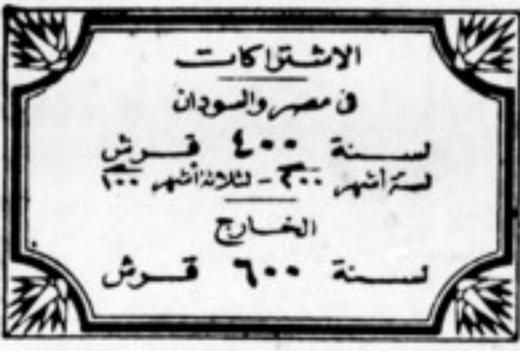 الاشتراكات
فى مصر والسودان
لسنة ٤٠٠ قرش
لستة أشهر ٢٠٠ - لثلاثة أشهر ١٠٠
الخارج
لسنة ٦٠٠ قرش